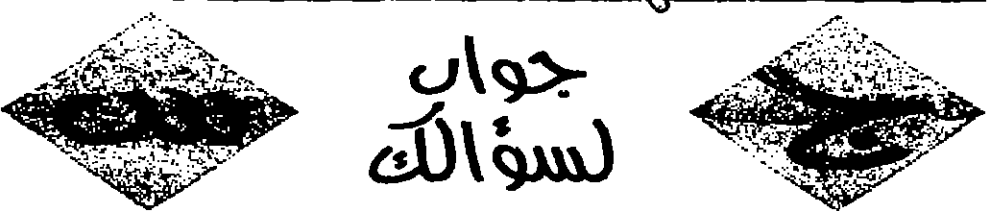 جواب
لسؤالك